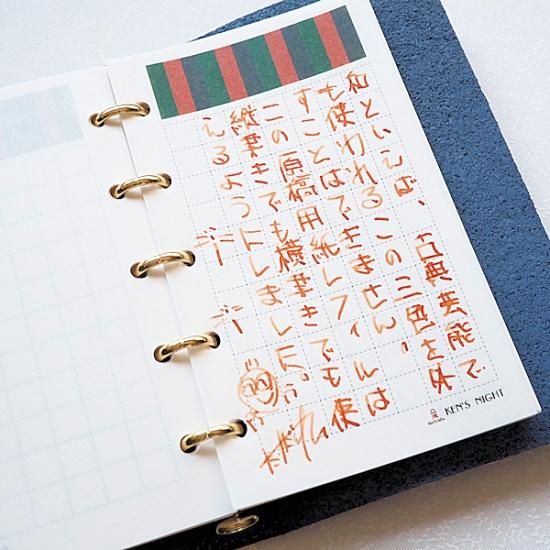 和といえば、古典芸能で
も使われるこの三色を外
すことはできません。
この原稿用紙レフィルは
縦書きでも横書きでも使
えるようにしました。
KEN'S NIGHT